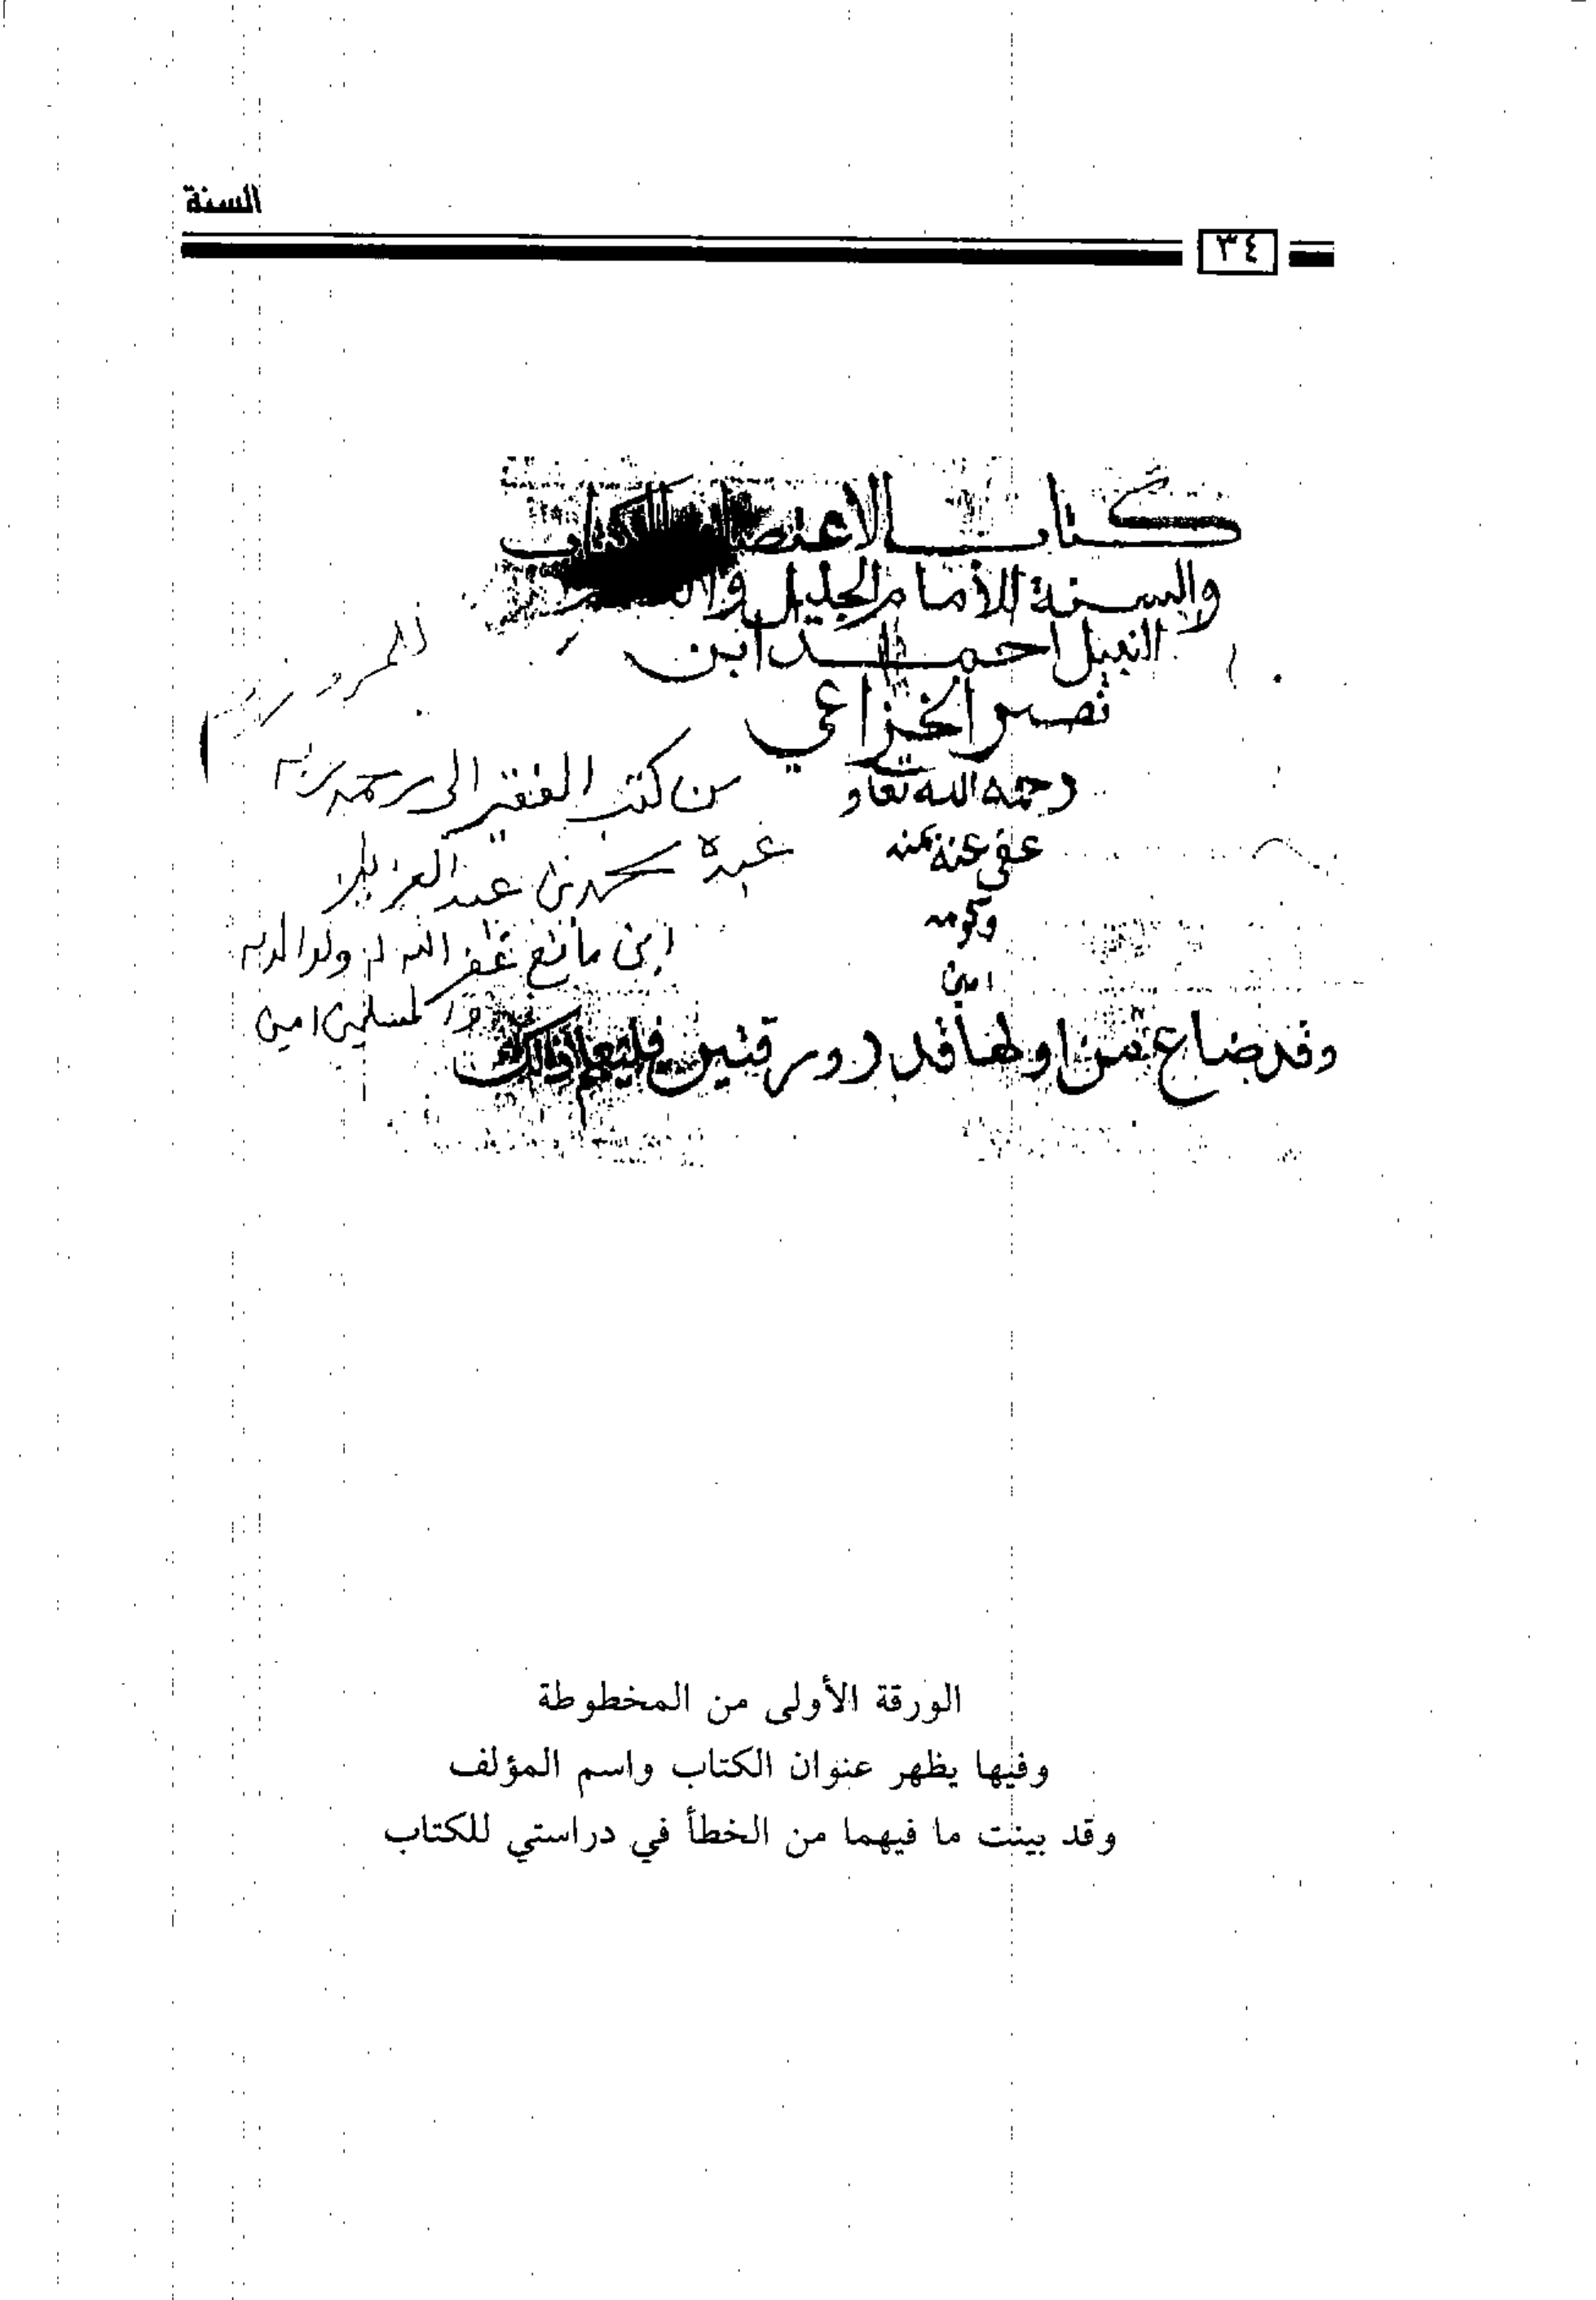 السنة
٣٤
كتاب الاعتصام بالكتاب
والسنة للأمام الجليل
النبيل احمد ابن
نصر الخزاعي
رحمه الله تعا و
عفى عنه بمنه
وكرمه
امين
للمروزي
من كتب الفقير الى رحمة ربه
عبده محمد بن عبد العزيز
ابن مانع غفر الله له ولوالديه
والمسلمين امين
وقد ضاع من اولها قدر ورقتين فليعلم ذلك
الورقة الأولى من المخطوطة
وفيها يظهر عنوان الكتاب واسم المؤلف
وقد بينت ما فيهما من الخطأ في دراستي للكتاب